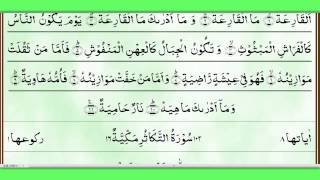 اَلْقَارِعَةُ ۙ مَا الْقَارِعَةُ ۚ وَ مَاۤ اَدْرٰىكَ مَا الْقَارِعَةُ ؕ یَوْمَ یَكُوْنُ النَّاسُ
كَالْفَرَاشِ الْمَبْثُوْثِ ۙ وَ تَكُوْنُ الْجِبَالُ كَالْعِهْنِ الْمَنْفُوْشِ ؕ فَاَمَّا مَنْ ثَقُلَتْ
مَوَازِیْنُهٗ ۙ فَهُوَ فِیْ عِیْشَةٍ رَّاضِیَةٍ ؕ وَ اَمَّا مَنْ خَفَّتْ مَوَازِیْنُهٗ ۙ فَاُمُّهٗ هَاوِیَةٌ ؕ
وَ مَاۤ اَدْرٰىكَ مَا هِیَهْ ؕ نَارٌ حَامِیَةٌ
اٰیاتها ۸ ۱۰۲ سُوْرَةُ التَّكَاثُرِ مَكِّیَّةٌ ۱۶ ركوعها ۱